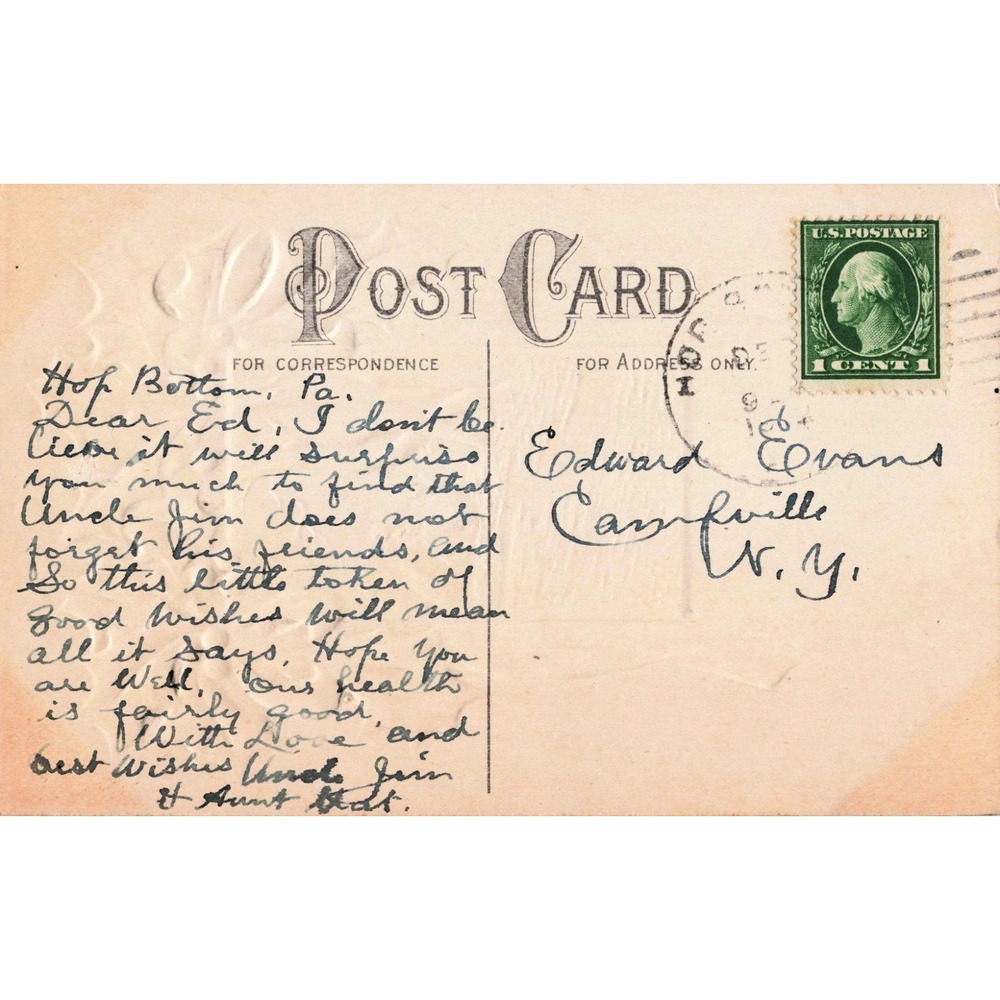 POST CARD
U.S. POSTAGE
1 CENT 1
FOR CORRESPONDENCE
FOR ADDRESS ONLY.
HOP B
DE
9
Hop Bottom, Pa.
Dear Ed, I don't be
lieve it will surpriso
you much to find that
Uncle Jim does not
forget his friends, and
So this little token of
good wishes will mean
all it says. Hope you
are well. Our health
is fairly good.
With Love and
best wishes Uncle Jim
& Aunt
Edward Evans
Campville
N. Y.